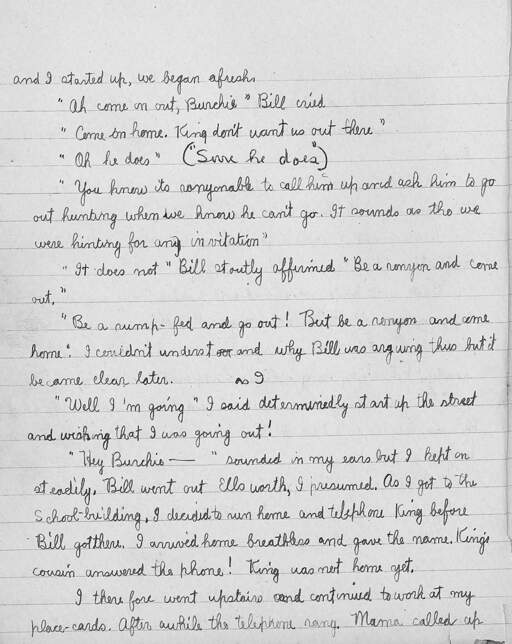 and I started up, we began afresh.
"Ah come on out, Burchie" Bill cried
"Come on home. King don't want us out there"
"Oh he does" ("Sure he does")
"You know its ronyonable to call him up and ask him to go
out hunting when we know he can't go. It sounds as tho we
were hinting for any invitation"
"It does not" Bill stoutly affirmed "Be a ronyon and come
out."
"Be a rump-fed and go out! But be a ronyon and come
home". I couldn't understand why Bill was arguing thus but it
became clear later. as I
"Well I'm going" I said determinedly start up the street
and wishing that I was going out!
"Hey Burchie — " sounded in my ears but I kept on
steadily. Bill went out Ellsworth, I presumed. As I got to the
School-building, I decided to run home and telephone King before
Bill got there. I arrived home breathless and gave the name. King's
cousin answered the phone! King was not home yet.
I there fore went upstairs and continued to work at my
place-cards. After awhile the telephone rang. Mama called up